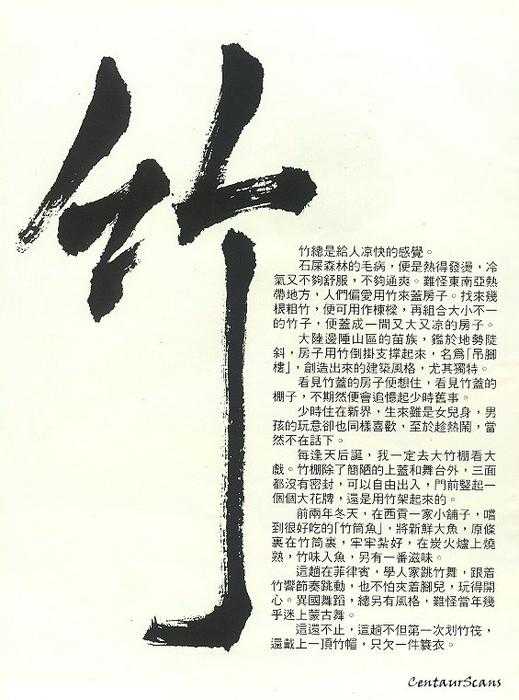 竹
竹總是給人凉快的感覺。
石屎森林的毛病，便是熱得發燙，冷
氣又不夠舒服，不夠通爽。難怪東南亞熱
帶地方，人們偏愛用竹來蓋房子。找來幾
根粗竹，便可用作棟樑，再組合大小不一
的竹子，便蓋成一間又大又凉的房子。
大陸邊陲山區的苗族，鑑於地勢陡
斜，房子用竹倒掛支撐起來，名爲「吊脚
樓」，創造出來的建築風格，尤其獨特。
看見竹蓋的房子便想住，看見竹蓋的
棚子，不期然便會追憶起少時舊事。
少時住在新界，生來雖是女兒身，男
孩的玩意卻也同樣喜歡，至於趁熱鬧，當
然不在話下。
每逢天后誕，我一定去大竹棚看大
戲。竹棚除了簡陋的上蓋和舞台外，三面
都沒有密封，可以自由出入，門前豎起一
個個大花牌，還是用竹架起來的。
前兩年冬天，在西貢一家小舖子，嚐
到很好吃的「竹筒魚」，將新鮮大魚，原條
裹在竹筒裏，牢牢紮好，在炭火爐上燒
熟，竹味入魚，另有一番滋味。
這趟在菲律賓，學人家跳竹舞，跟着
竹響節奏跳動，也不怕夾着脚兒，玩得開
心。異國舞蹈，總另有風格，難怪當年幾
乎迷上蒙古舞。
這還不止，這趟不但第一次划竹筏，
還戴上一頂竹帽，只欠一件簑衣。
CentaurScans